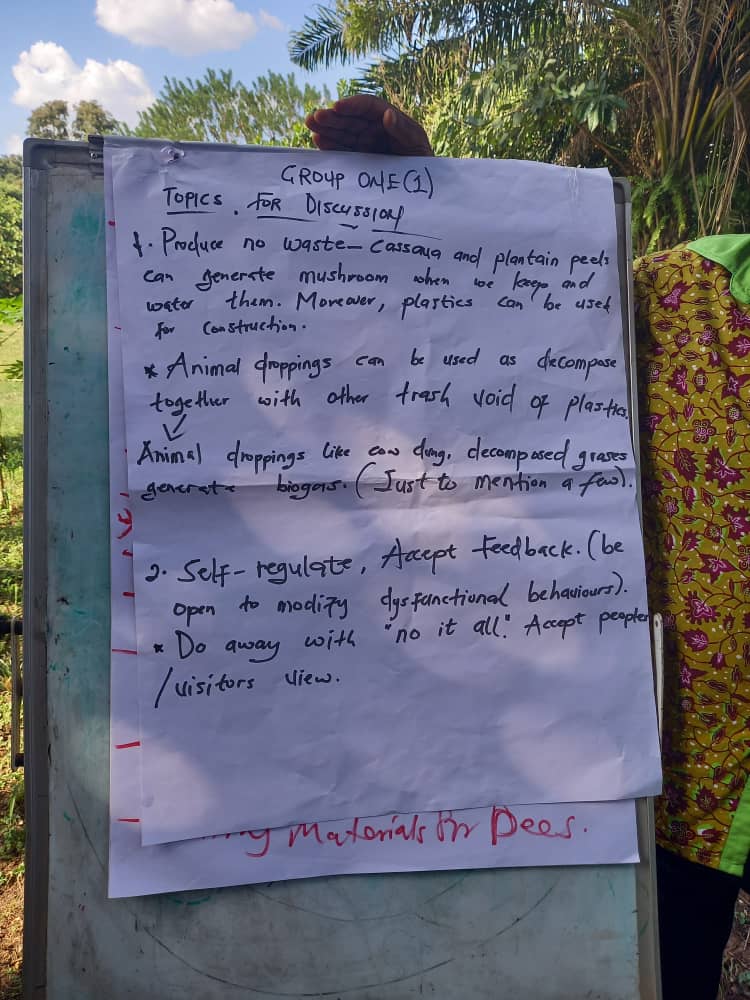 GROUP ONE (1)
TOPICS . FOR DISCUSSION
1. Produce no waste – Cassava and plantain peels
can generate mushroom when we keep and
water them. Moreover, plastics can be used
for construction.
* Animal droppings can be used as decompose
together with other trash void of plastics.
Animal droppings like cow dung, decomposed grases
generate biogas. (Just to mention a few).
2. Self-regulate, Accept Feedback. (be
open to modify dysfunctional behaviours).
* Do away with "no it all." Accept peoples
/visitors view.
Materials for Bees.